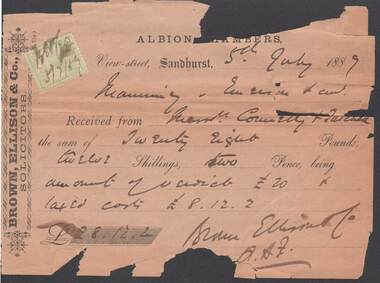 ALBION CHAMBERS,
View-street, Sandhurst, 5th July 1889
Manning v Emerson & an.
Received from Messrs Connelly &
the sum of Twenty Eight Pounds,
twelve Shillings, two Pence, being
amount of verdict £20 &
taxed costs £8.12.2
£28.12.2
Brown Ellison & Co
BROWN, ELLISON & Co.,
SOLICITORS.